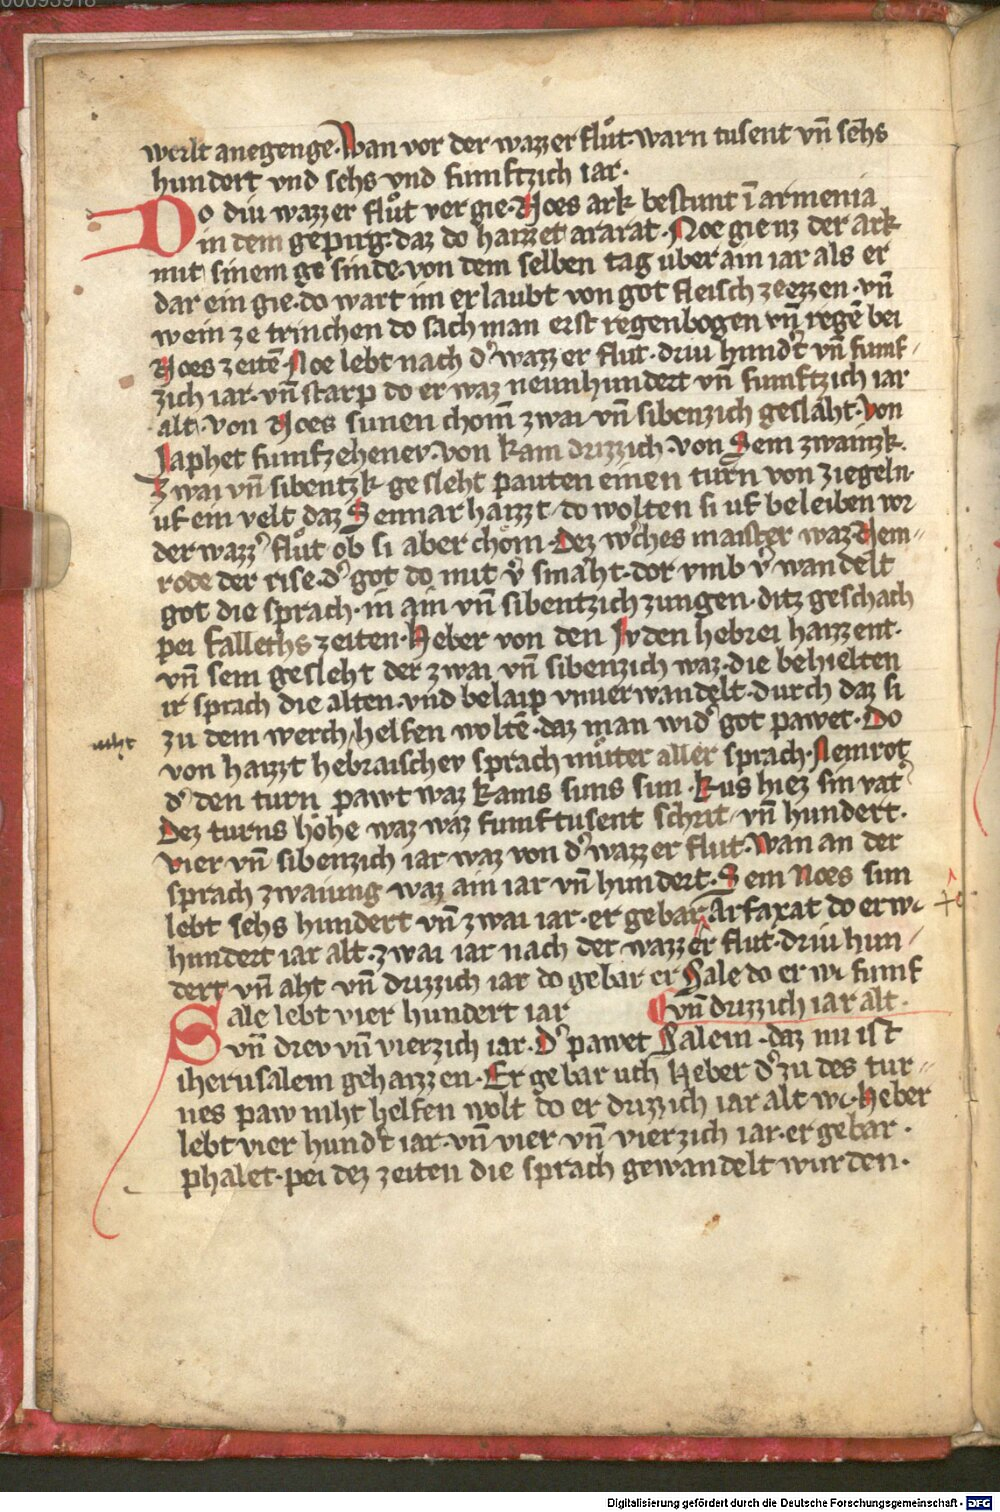 00095918
werlt anegenge. Wan vor der wazzer flůt. warn tusent vñ sehs
hundert vnd sehs vnd fumftzich iar.
Do diu wazzer flůt vergie. Noes ark bestunt ī armenia
in dem gepirg. daz do haizzet ararat. Noe gienz der ark
mit sinem ge sinde. von dem selben tag uber ain iar als er
dar ein gie. do wart im erlaubt von got fleisch zeezzen. vñ
wein ze trinchen do sach man erst regenbogen vñ regē bei
Noes zeitē. Noe lebt nach d' wazzer flut. driu hund't vñ fumf-
zich iar. vñ starp do er waz neunhundert vñ fumftzich iar
alt. von Noes sunen chom̄ zwai vñ sibenzich geslaht. von
Iaphet fumfzehenev. von kam drizzich. von Sem zwainzk.
Zwai vñ sibentzk ge sleht pauten einen turn von ziegeln.
uf ein velt daz Sennar haizzt. do wolten si uf beleiben vor
der wazz' flůt ob si aber chöm. Dez w'ches maister waz Nem-
rode der rise. d' got do mit v'smaht. dor vmb v'wandelt
got die sprach. in ain vñ sibentzich zungen. ditz geschach
pei fallechs zeiten. Heber von den Iuden hebrei haizzent.
vñ sem gesleht der zwai vñ sibenzich waz. die behielten
ir sprach die alten. vnd belaip vnuerwandelt. durch daz si
niht
zu dem werch helfen woltē. daz man wid' got pawet. Do
von haizzt hebraischev sprach můter aller sprach. Nemrot
d' den turn pawt waz kams suns sun. kus hiez sin vat'
Dez turns höhe waz waz fumftusent schrit. vñ hundert.
vier vñ sibenzich iar waz von d' wazzer flut. Wan an der
sprach zwaiung waz ain iar vñ hundert. Sem Noes sun
lebt sehs hundert vñ zwai iar. er gebar Arfaxat do er wc
hundert iar alt. zwai iar nach der wazzer flut. driu hun-
dert vñ aht vñ drizzich iar do gebar er Sale do er wc fumf
Sale lebt vier hundert iar vñ drizzich iar alt.
vñ drev vñ vierzich iar. D' pawet Salem. daz nu ist
iherusalem gehaizzen. Er gebar uch Heber d' zu des tur-
nes paw niht helfen wolt do er drizzich iar alt wc. Heber
lebt vier hund't iar. vñ vier vñ vierzich iar. er gebar.
phalet. pei dez zeiten die sprach gewandelt wurden.
Digitalisierung gefördert durch die Deutsche Forschungsgemeinschaft - DFG